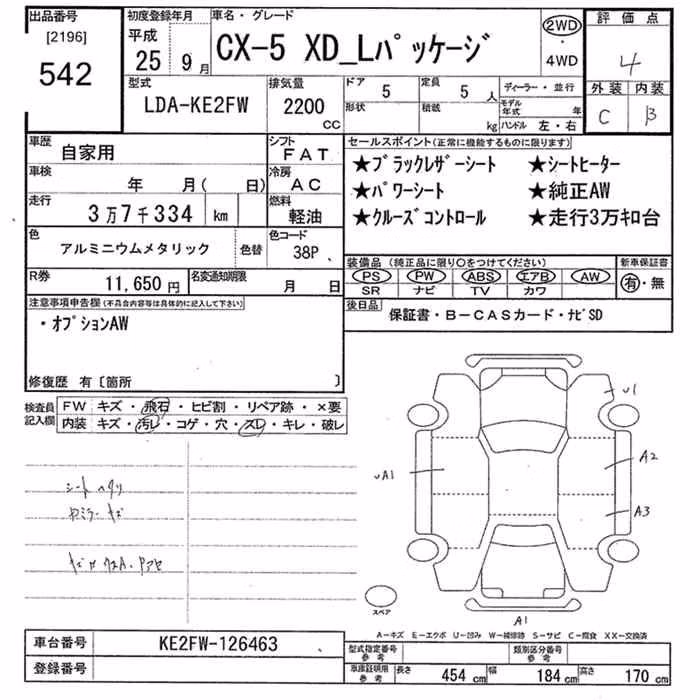 出品番号 初度登録年月 車名・グレード 評価点
[2196] 平成
542 25年9月 CX-5 XD_Lﾊﾟｯｹｰｼﾞ 2WD・4WD 4
型式 排気量 ドア 定員 ディーラー・並行 外装 内装
LDA-KE2FW 2200CC 5 5人 モデル年式 年 C B
形状 積載 kg ハンドル 左・右
車歴 自家用 シフト FAT セールスポイント(正常に機能するものに限ります)
車検 年 月( 日) 冷房 AC ★ﾌﾞﾗｯｸﾚｻﾞｰｼｰﾄ ★ｼｰﾄﾋｰﾀｰ
走行 3万7千334 km 燃料 軽油 ★ﾊﾟﾜｰｼｰﾄ ★純正AW
★ｸﾙｰｽﾞｺﾝﾄﾛｰﾙ ★走行3万ｷﾛ台
色 アルミニウムメタリック 色替 色コード 38P
装備品(純正品に限り○をつけてください) 新車保証書
PS PW ABS エアB AW 有・無
SR ナビ TV カワ
R券 11,650円 名変通知期限 月 日
後日品 保証書・B-CASカード・ﾅﾋﾞSD
注意事項申告欄(不具合内容等は具体的に記入して下さい)
・ｵﾌﾟｼｮﾝAW
修復歴 有〔箇所 〕
検査員記入欄 FW キズ・飛石・ヒビ割・リペア跡・×要
内装 キズ・汚レ・コゲ・穴・スレ・キレ・破レ
U1
A2
UA1
A3
シートヘタリ
スペア
A1
A-キズ E-エクボ U-凹み W-補修跡 S-サビ C-腐食 XX-交換済
車台番号 KE2FW-126463 型式指定番号 参考 類別区分番号 参考
登録番号 車庫証明用 参考 長さ 454 cm 幅 184 cm 高さ 170 cm